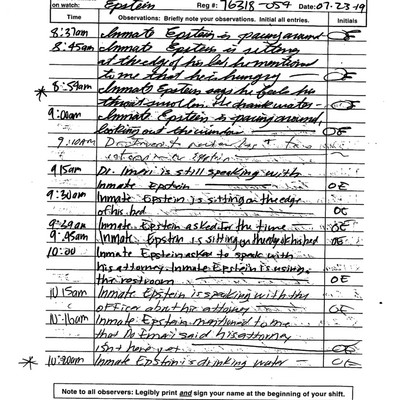 on watch: Epstein Reg #: 76318-054 Date: 07-23-19
Time Observations: Briefly note your observations. Initial all entries. Initials
8:37am Inmate Epstein is pacing around OE
8:45am Inmate Epstein is sitting
at the edge of his bed he mentioned
time that he is hungry OE
* 8:54am Inmate Epstein says he feels his
throat swollen. He drank water
9:00am Inmate Epstein is pacing around
looking out the window OE
9:10am
interview Epstein
9:15am Dr. Imeri is still speaking with
Inmate Epstein OE
9:30am Inmate Epstein is sitting on the edge
of his bed OE
9:39am Inmate Epstein asked for the time OE
9:45am Inmate Epstein is sitting on the edge of his bed OE
10:00 Inmate Epstein asked to speak with
his attorney. Inmate Epstein is using
the restroom OE
10:15am Inmate Epstein is speaking with the
officer about his attorney OE
10:16am Inmate Epstein mentioned to me
that Dr Imeri said his attorney
isn't here yet OE
* 10:20am Inmate Epstein is drinking water OE
Note to all observers: Legibly print and sign your name at the beginning of your shift.